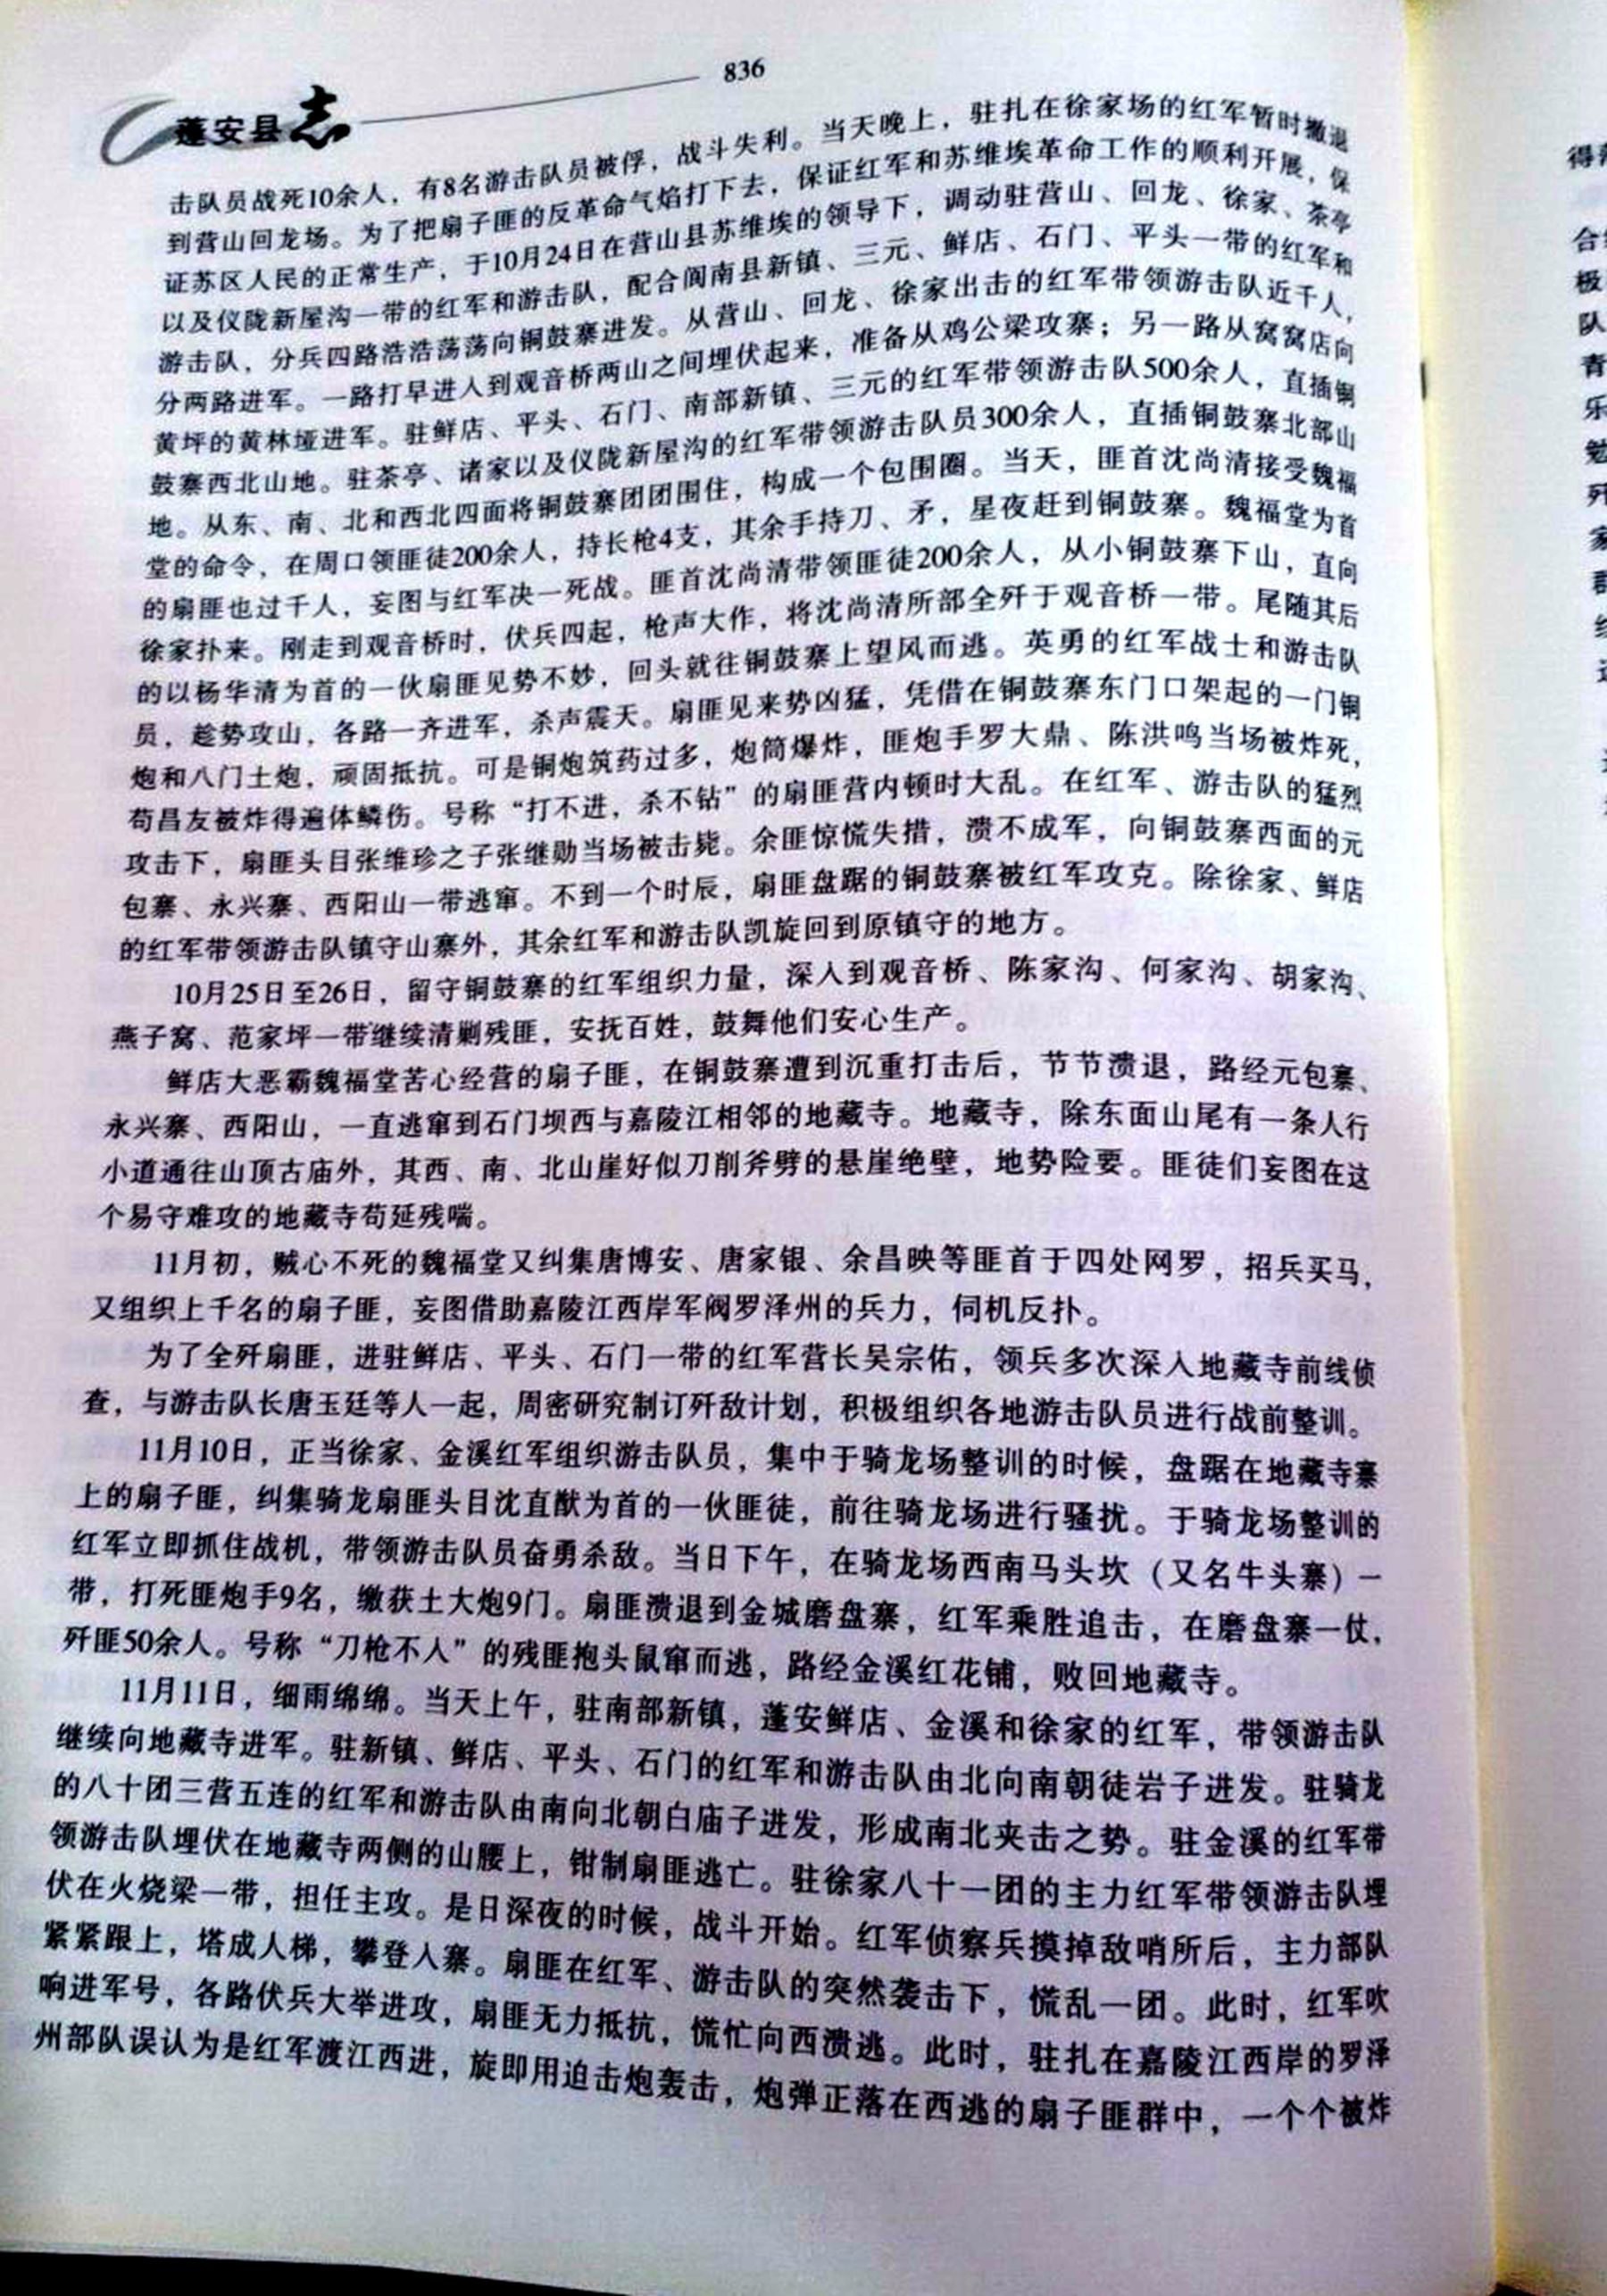 836
蓬安县志
击队员战死10余人，有8名游击队员被俘，战斗失利。当天晚上，驻扎在徐家场的红军暂时撤退
到营山回龙场。为了把扇子匪的反革命气焰打下去，保证红军和苏维埃革命工作的顺利开展，保
证苏区人民的正常生产，于10月24日在营山县苏维埃的领导下，调动驻营山、回龙、徐家、茶亭
以及仪陇新屋沟一带的红军和游击队，配合阆南县新镇、三元、鲜店、石门、平头一带的红军和
游击队，分兵四路浩浩荡荡向铜鼓寨进发。从营山、回龙、徐家出击的红军带领游击队近千人，
分两路进军。一路打早进入到观音桥两山之间埋伏起来，准备从鸡公梁攻寨；另一路从窝窝店向
黄坪的黄林垭进军。驻鲜店、平头、石门、南部新镇、三元的红军带领游击队500余人，直插铜
鼓寨西北山地。驻茶亭、诸家以及仪陇新屋沟的红军带领游击队员300余人，直插铜鼓寨北部山
地。从东、南、北和西北四面将铜鼓寨团团围住，构成一个包围圈。当天，匪首沈尚清接受魏福
堂的命令，在周口领匪徒200余人，持长枪4支，其余手持刀、矛，星夜赶到铜鼓寨。魏福堂为首
的扇匪也过千人，妄图与红军决一死战。匪首沈尚清带领匪徒200余人，从小铜鼓寨下山，直向
徐家扑来。刚走到观音桥时，伏兵四起，枪声大作，将沈尚清所部全歼于观音桥一带。尾随其后
的以杨华清为首的一伙扇匪见势不妙，回头就往铜鼓寨上望风而逃。英勇的红军战士和游击队
员，趁势攻山，各路一齐进军，杀声震天。扇匪见来势凶猛，凭借在铜鼓寨东门口架起的一门铜
炮和八门土炮，顽固抵抗。可是铜炮筑药过多，炮筒爆炸，匪炮手罗大鼎、陈洪鸣当场被炸死，
苟昌友被炸得遍体鳞伤。号称“打不进，杀不钻”的扇匪营内顿时大乱。在红军、游击队的猛烈
攻击下，扇匪头目张维珍之子张继勋当场被击毙。余匪惊慌失措，溃不成军，向铜鼓寨西面的元
包寨、永兴寨、西阳山一带逃窜。不到一个时辰，扇匪盘踞的铜鼓寨被红军攻克。除徐家、鲜店
的红军带领游击队镇守山寨外，其余红军和游击队凯旋回到原镇守的地方。
10月25日至26日，留守铜鼓寨的红军组织力量，深入到观音桥、陈家沟、何家沟、胡家沟、
燕子窝、范家坪一带继续清剿残匪，安抚百姓，鼓舞他们安心生产。
鲜店大恶霸魏福堂苦心经营的扇子匪，在铜鼓寨遭到沉重打击后，节节溃退，路经元包寨、
永兴寨、西阳山，一直逃窜到石门坝西与嘉陵江相邻的地藏寺。地藏寺，除东面山尾有一条人行
小道通往山顶古庙外，其西、南、北山崖好似刀削斧劈的悬崖绝壁，地势险要。匪徒们妄图在这
个易守难攻的地藏寺苟延残喘。
11月初，贼心不死的魏福堂又纠集唐博安、唐家银、余昌映等匪首于四处网罗，招兵买马，
又组织上千名的扇子匪，妄图借助嘉陵江西岸军阀罗泽州的兵力，伺机反扑。
为了全歼扇匪，进驻鲜店、平头、石门一带的红军营长吴宗佑，领兵多次深入地藏寺前线侦
查，与游击队长唐玉廷等人一起，周密研究制订歼敌计划，积极组织各地游击队员进行战前整训。
11月10日，正当徐家、金溪红军组织游击队员，集中于骑龙场整训的时候，盘踞在地藏寺寨
上的扇子匪，纠集骑龙扇匪头目沈直猷为首的一伙匪徒，前往骑龙场进行骚扰。于骑龙场整训的
红军立即抓住战机，带领游击队员奋勇杀敌。当日下午，在骑龙场西南马头坎（又名牛头寨）一
带，打死匪炮手9名，缴获土大炮9门。扇匪溃退到金城磨盘寨，红军乘胜追击，在磨盘寨一仗，
歼匪50余人。号称“刀枪不入”的残匪抱头鼠窜而逃，路经金溪红花铺，败回地藏寺。
11月11日，细雨绵绵。当天上午，驻南部新镇，蓬安鲜店、金溪和徐家的红军，带领游击队
继续向地藏寺进军。驻新镇、鲜店、平头、石门的红军和游击队由北向南朝徒岩子进发。驻骑龙
的八十团三营五连的红军和游击队由南向北朝白庙子进发，形成南北夹击之势。驻金溪的红军带
领游击队埋伏在地藏寺两侧的山腰上，钳制扇匪逃亡。驻徐家八十一团的主力红军带领游击队埋
伏在火烧梁一带，担任主攻。是日深夜的时候，战斗开始。红军侦察兵摸掉敌哨所后，主力部队
紧紧跟上，塔成人梯，攀登入寨。扇匪在红军、游击队的突然袭击下，慌乱一团。此时，红军吹
响进军号，各路伏兵大举进攻，扇匪无力抵抗，慌忙向西溃逃。此时，驻扎在嘉陵江西岸的罗泽
州部队误认为是红军渡江西进，旋即用迫击炮轰击，炮弹正落在西逃的扇子匪群中，一个个被炸